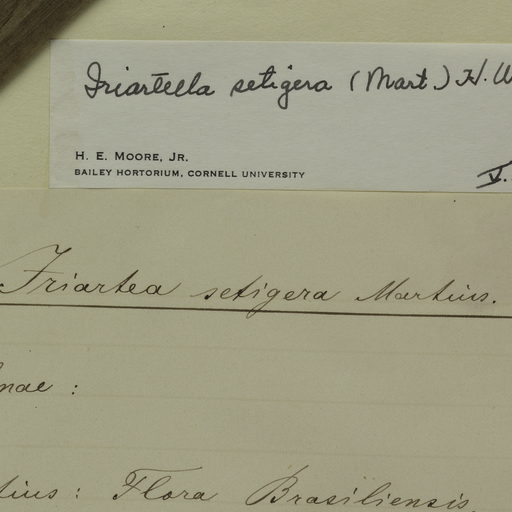 Iriartella setigera (Mart.) H.
H. E. MOORE, JR.
BAILEY HORTORIUM, CORNELL UNIVERSITY
V.
Iriartea setigera Martius.
mae :
tius: Flora Brasiliensis.